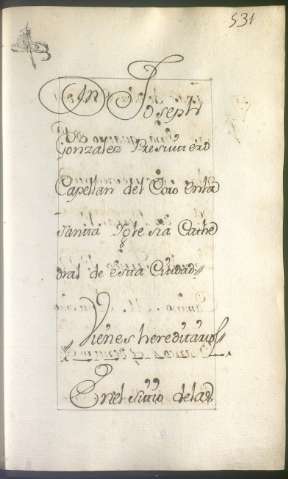 531
Dn Joseph
Gonzalez Presvitero
Capellan del Coro en la
santa Iglesia Cathe
dral de esta Ciudad
Vienes hereditarios
En el sitio de la